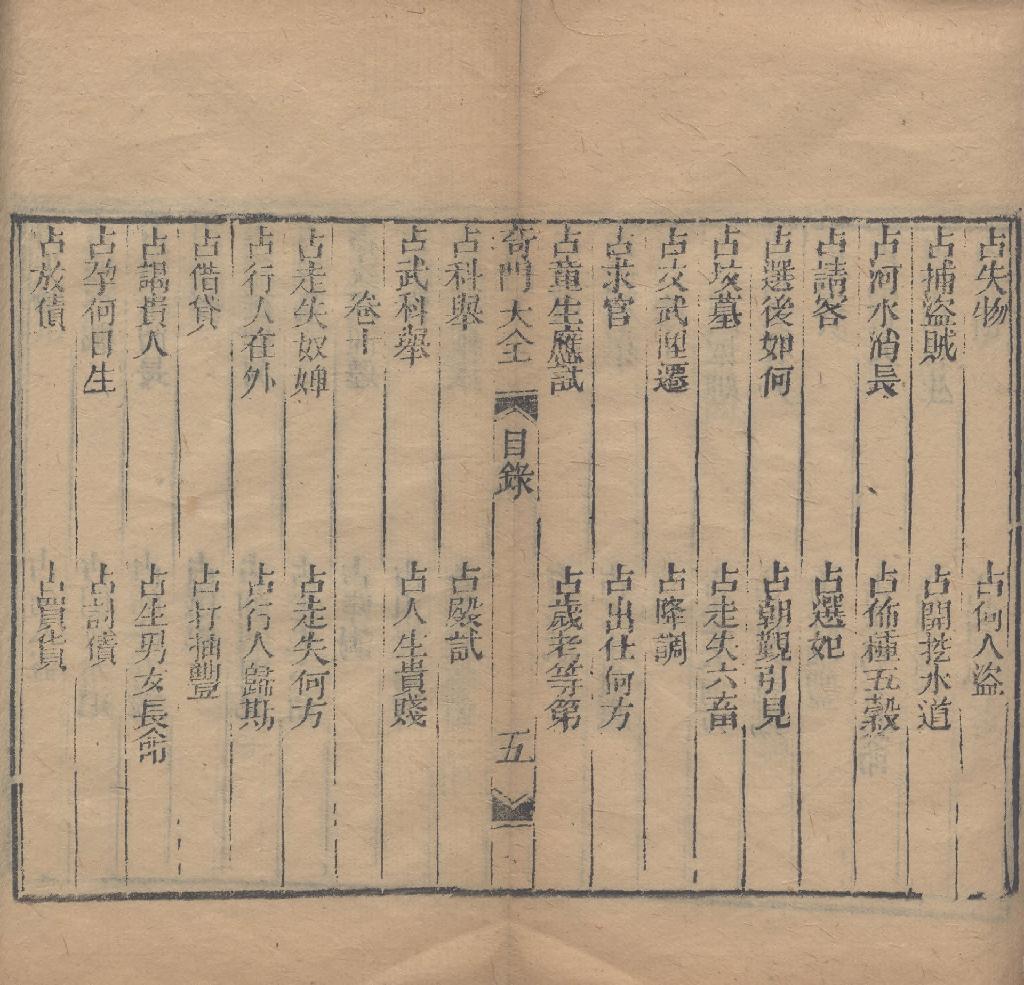 占失物　占何人盜
占捕盜賊　占開挖水道
占河水消長　占佈種五穀
占請客　占選妃
占選後如何　占朝覲引見
占坟墓　占走失六畜
占文武陞遷　占降調
占求官　占出仕何方
占童生應試　占歲考等第
奇門大全　目錄　五
占科舉　占殿試
占武科舉　占人生貴賤
卷十
占走失奴婢　占走失何方
占行人在外　占行人歸期
占借貸　占打抽豐
占謁貴人　占生男女長命
占孕何日生　占討債
占放債　占買貨